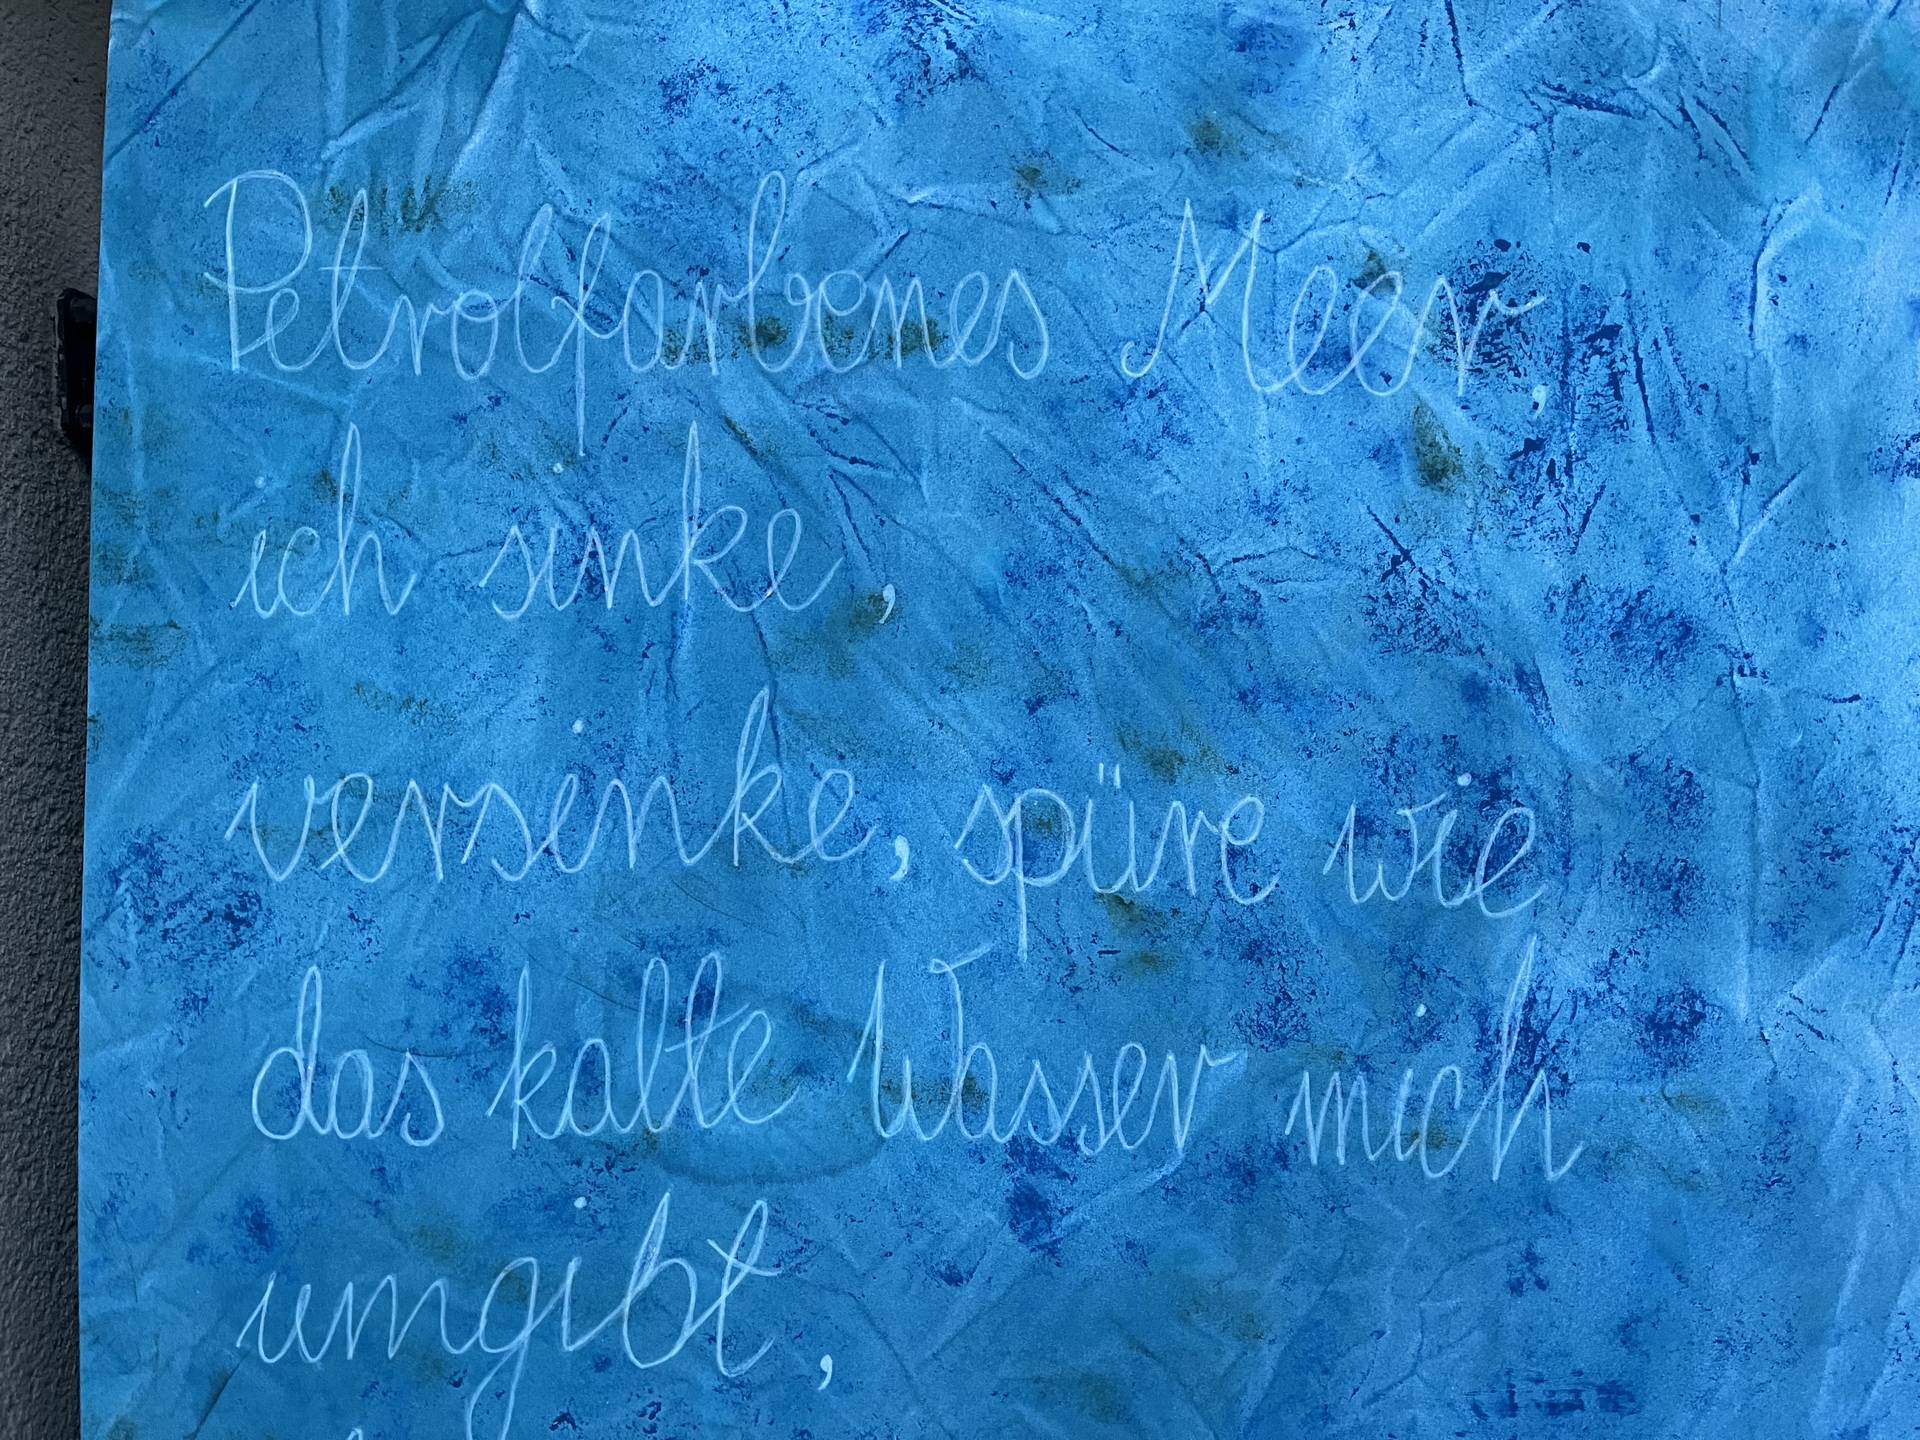 Petrolfarbenes Meer,
ich sinke,
versinke, spüre wie
das kalte Wasser mich
umgibt,